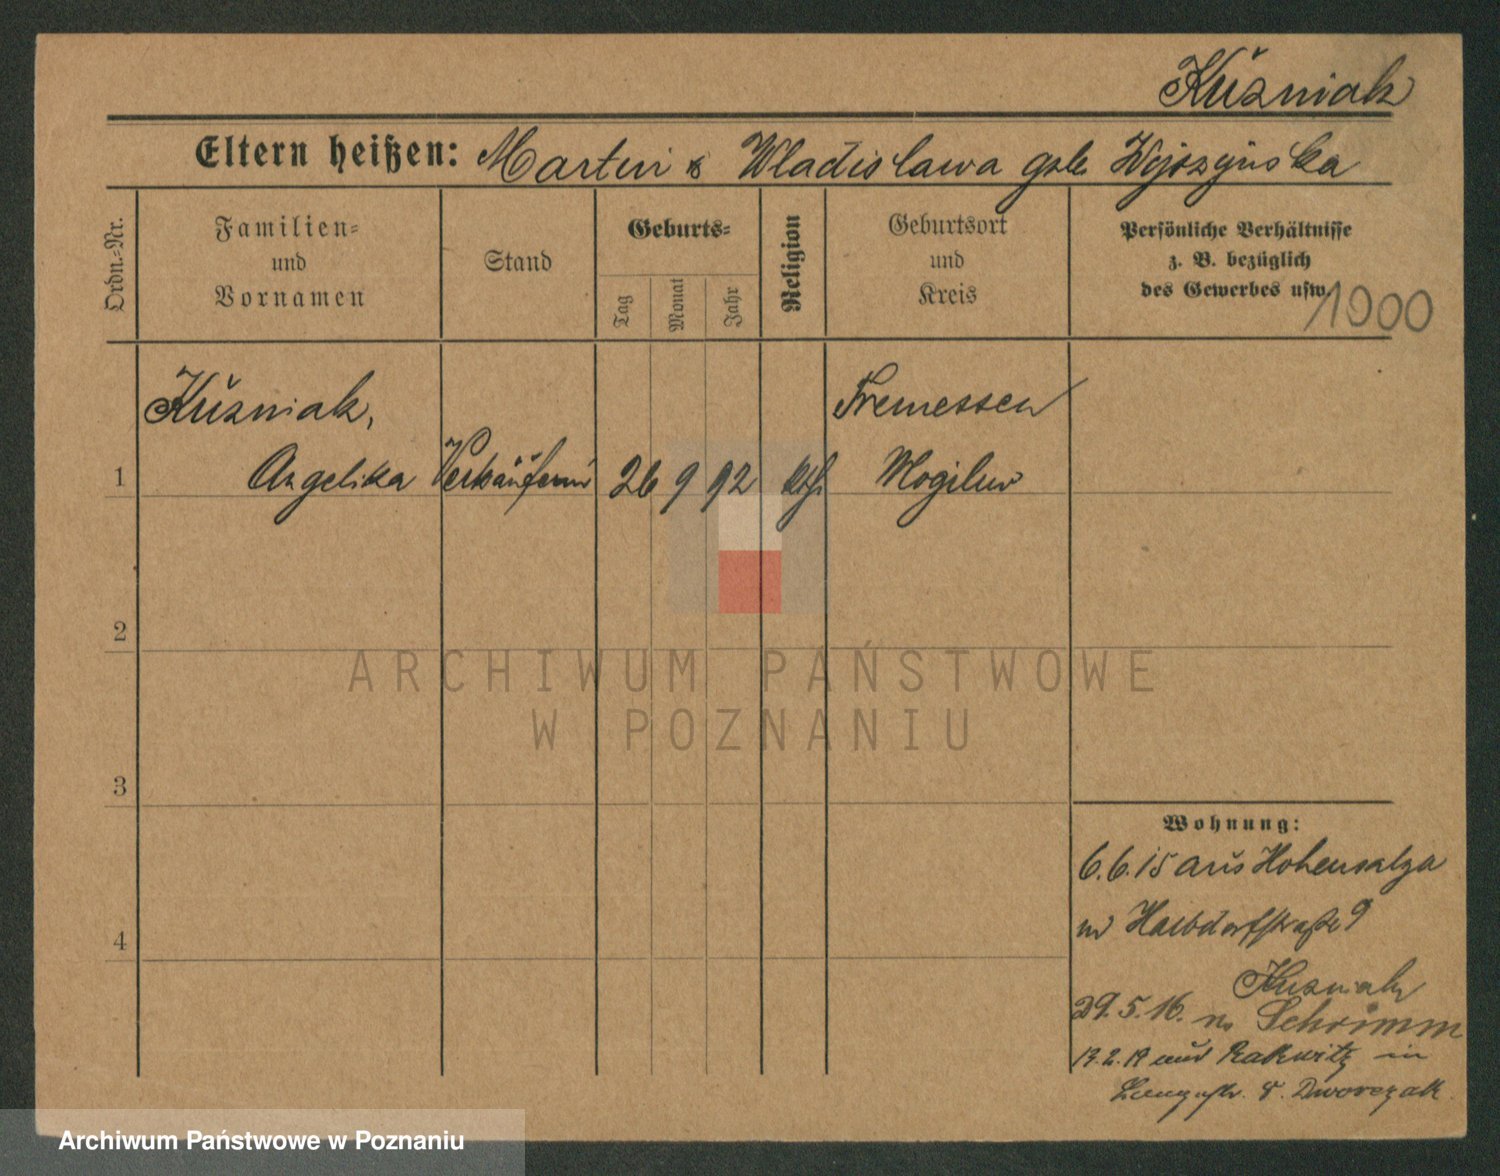 Kuźniak
Eltern heißen: Martin & Wladislawa geb.
Ordn.-Nr.
Familien-
und
Vornamen
Stand
Geburts-
Tag
Monat
Jahr
Religion
Geburtsort
und
Kreis
Persönliche Verhältnisse
z. B. bezüglich
des Gewerbes usw.
1900
Kuźniak,
Tremessen
1 Angelika Verkäuferin 26 9 92 kth. Mogilno
2
3
4
Wohnung:
6.6.15 aus Hohensalza
9
Kuzniak
29.5.16. n. Schrimm
aus Rakwitz in
Langestr. 8. Dworczak
ARCHIWUM PAŃSTWOWE
W POZNANIU
Archiwum Państwowe w Poznaniu